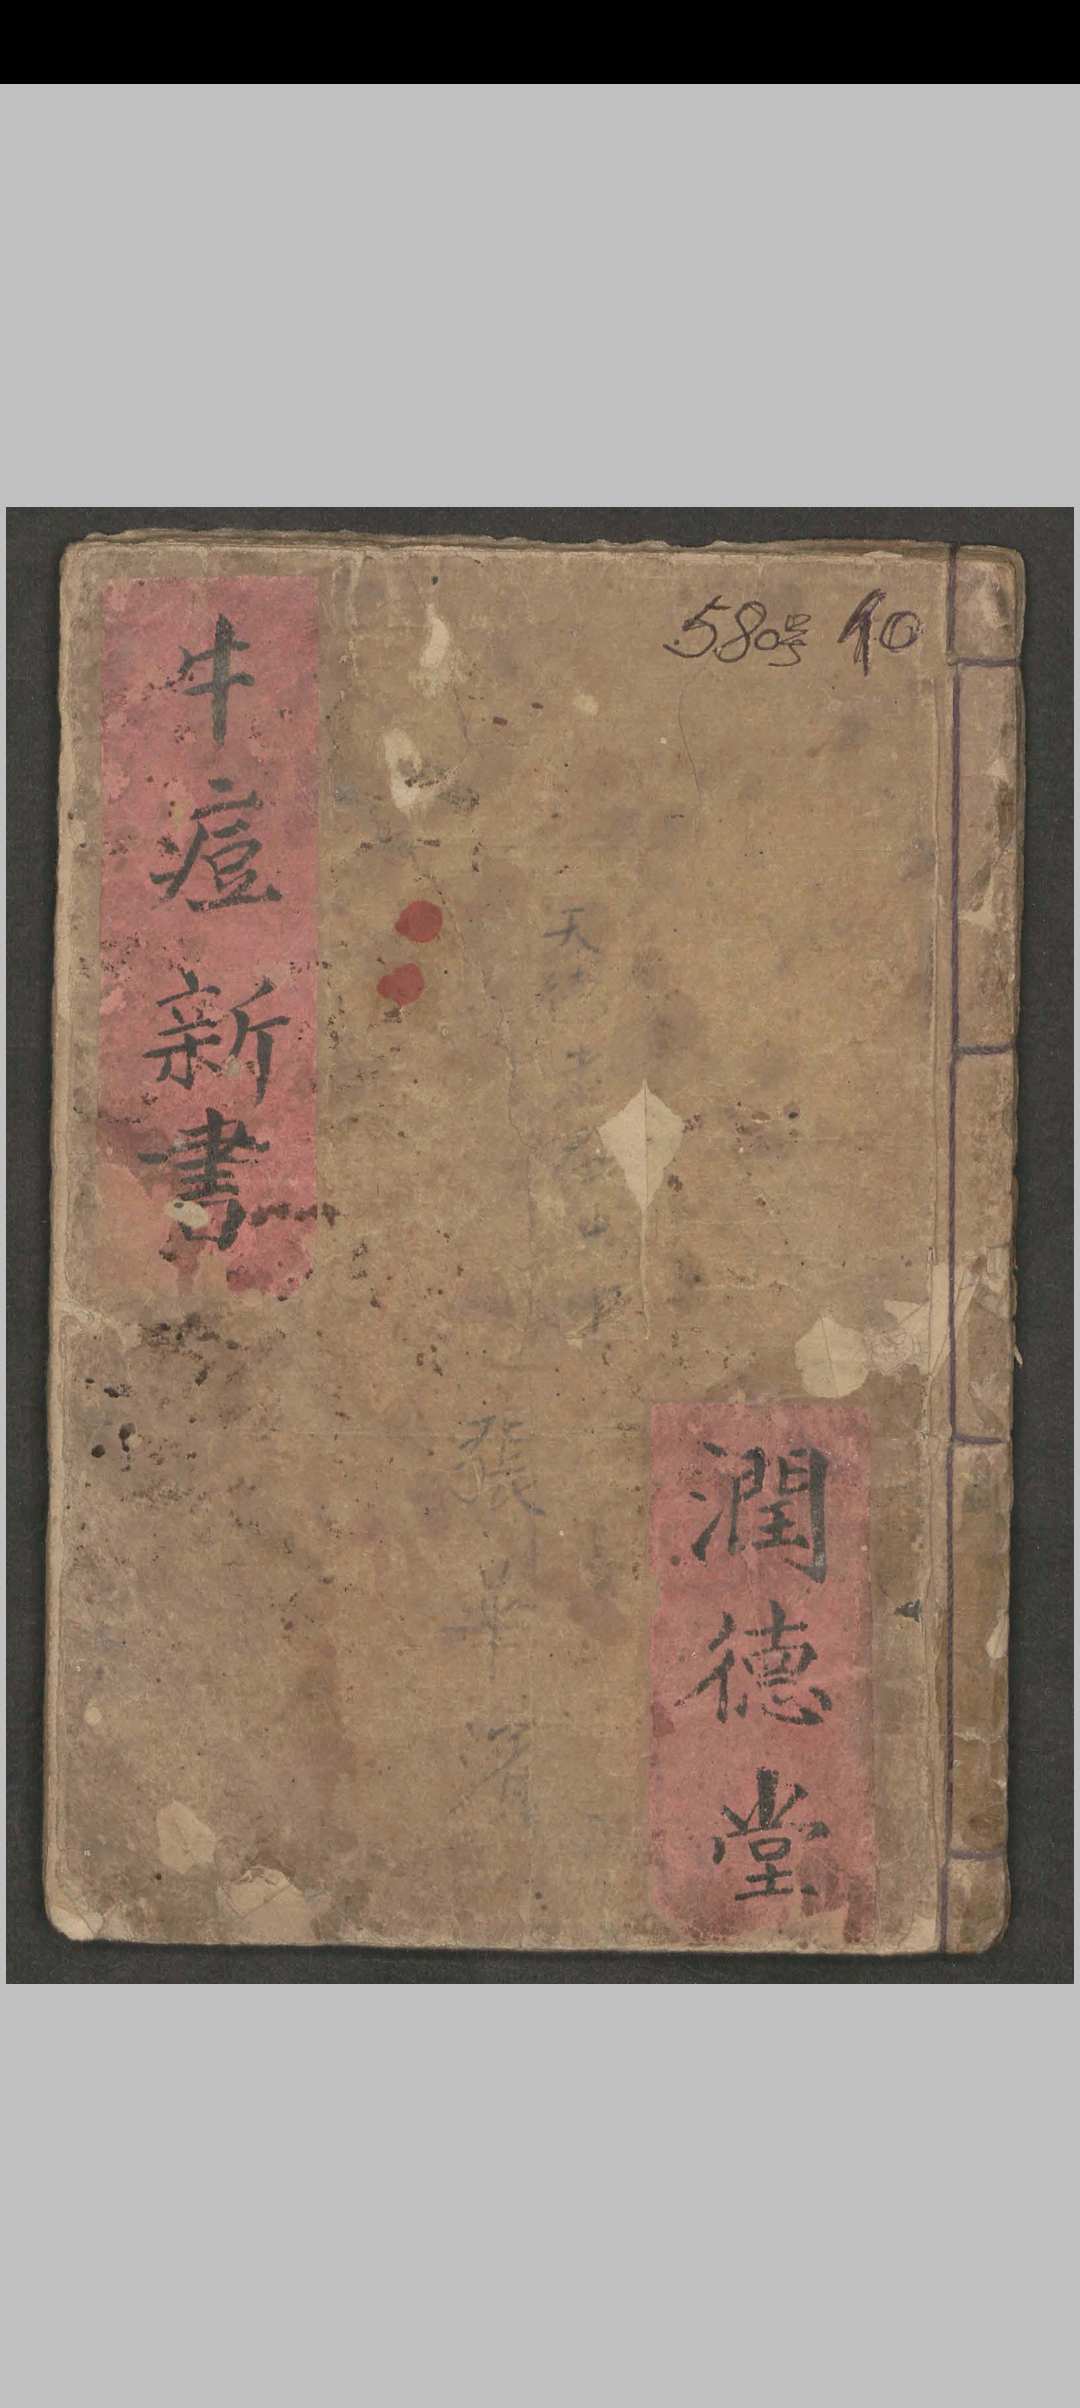 580号 10
牛痘新書
天
張
潤德堂